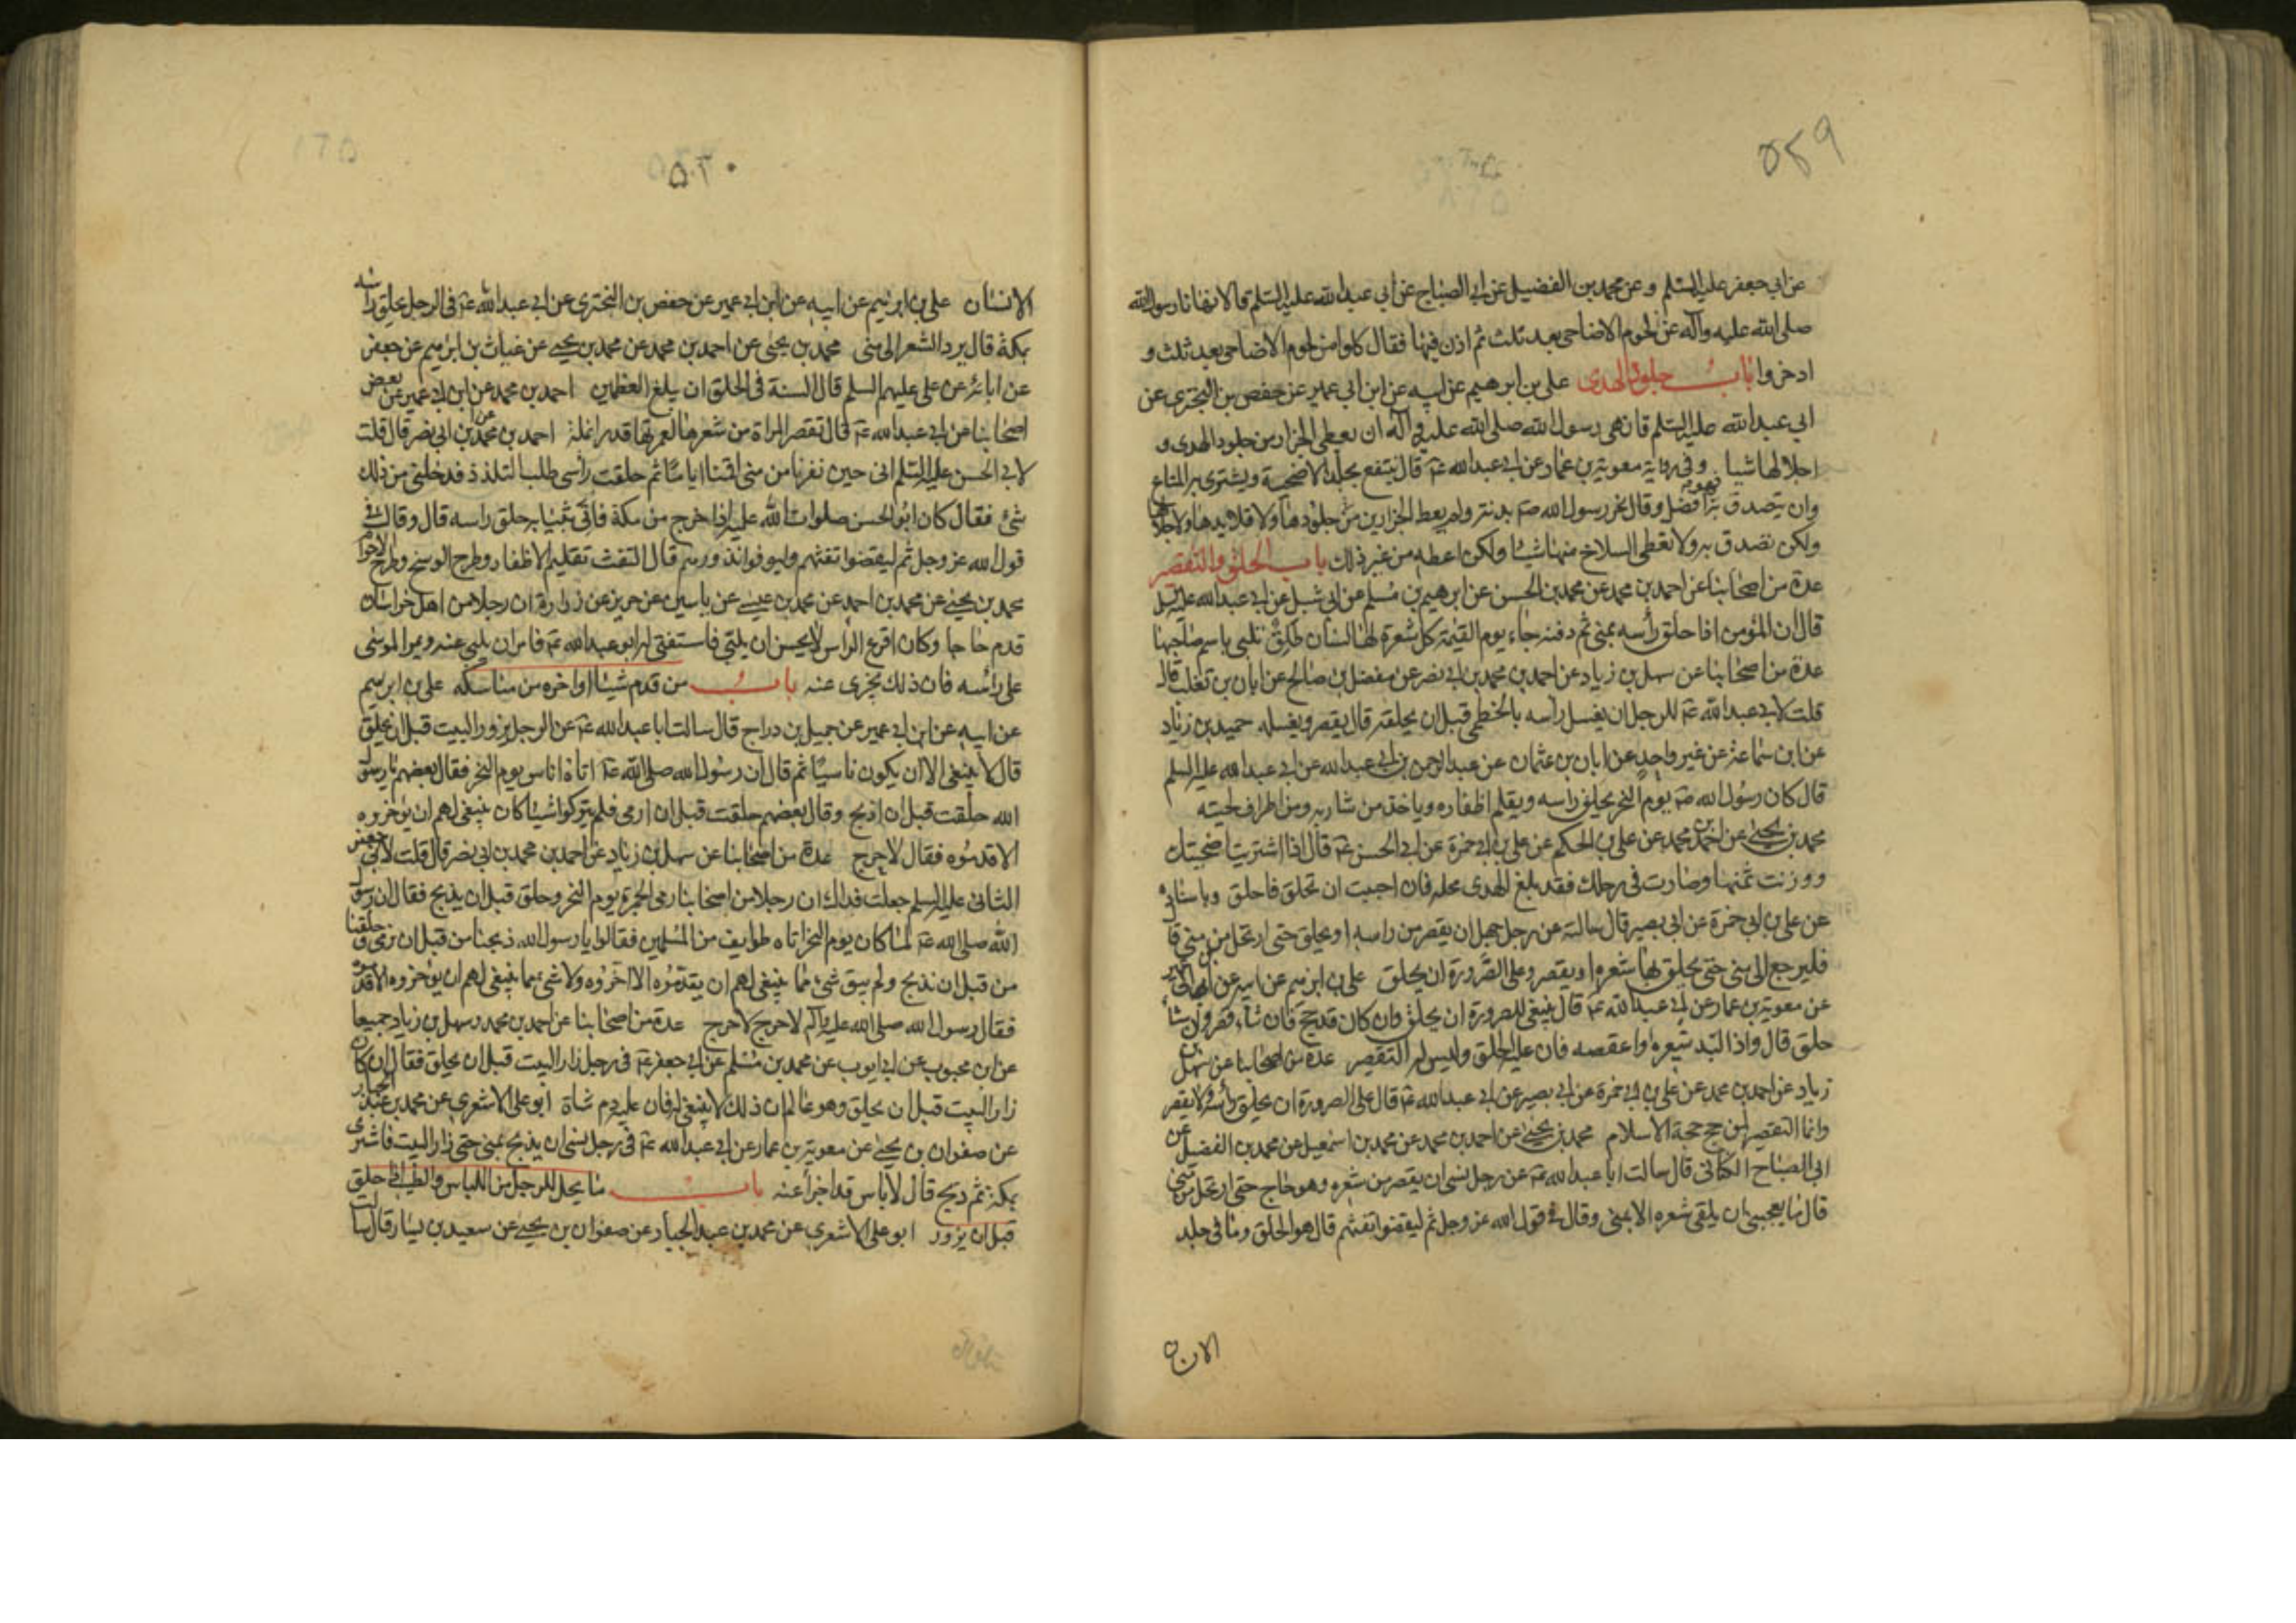 ۵۲۹
عن ابي جعفر عليه السلم وعن محمد بن الفضيل عن ابي الصباح عن ابي عبد الله عليه السلم قالا نهانا رسول الله
صلى الله عليه وآله عن لحوم الاضاحى بعد ثلث ثم اذن فيها فقال كلوا من لحوم الاضاحى بعد ثلث و
ادخروا باب جلود الهدى على بن ابرهيم عن ابيه عن ابن ابي عمير عن حفص بن البخترى عن
ابي عبد الله عليه السلم قال نهى رسول الله صلى الله عليه وآله ان يعطى الجزار من جلود الهدى و
اجلالها شيا وفي رواية معوية بن عمار عن ابي عبد الله ع قال ينتفع بجلد الاضحية ويشترى به المتاع
وان تصدق به فهو افضل وقال نحر رسول الله ص بدنته ولم يعط الجزارين من جلودها ولا قلايدها ولا جلالها
ولكن تصدق به ولا تعطى السلاخ منها شيئا ولكن اعطه من غير ذلك باب الحلق والتقصير
عدة من اصحابنا عن احمد بن محمد عن محمد بن الحسن عن ابرهيم بن مسلم عن ابي شبل عن ابي عبد الله عليه السلم
قال ان المؤمن اذا حلق رأسه بمنى ثم دفنه جاء يوم القيمة كل شعرة لها لسان طلق تلبي باسم صاحبها
عدة من اصحابنا عن سهل بن زياد عن احمد بن محمد بن ابي نصر عن مفضل بن صالح عن ابان بن تغلب قال
قلت لابي عبد الله ع للرجل ان يغسل رأسه بالخطمى قبل ان يحلقه قال يقصر ويغسله حميد بن زياد
عن ابن سماعة عن غير واحد عن ابان بن عثمان عن عبد الرحمن بن ابي عبد الله عن ابي عبد الله عليه السلم
قال كان رسول الله ص يوم النحر يحلق راسه ويقلم اظفاره وياخذ من شاربه ومن اطراف لحيته
محمد بن يحيى عن احمد بن محمد عن على بن الحكم عن على بن ابي حمزة عن ابي الحسن ع قال اذا اشتريت اضحيتك
ووزنت ثمنها وصارت في رحلك فقد بلغ الهدى محله فان احببت ان تحلق فاحلق وباسناده
عن على بن ابي حمزة عن ابي بصير قال سالته عن رجل جهل ان يقصر من راسه او يحلق حتى ارتحل من منى قا
فليرجع الى منى حتى يحلق بها شعره او يقصر وعلى الصرورة ان يحلق على بن ابرهيم عن ابيه عن ابن ابي عمير
عن معوية بن عمار عن ابي عبد الله ع قال ينبغى للصرورة ان يحلق وان كان قد حج فان شاء قصر وان شاء
حلق قال واذا لبد شعره او عقصه فان عليه الحلق وليس له التقصير عدة من اصحابنا عن سهل بن
زياد عن احمد بن محمد عن على بن ابي حمزة عن ابي بصير عن ابي عبد الله ع قال على الصرورة ان يحلق رأسه ولا يقصر
وانما التقصير لمن حج حجة الاسلام محمد بن يحيى عن احمد بن محمد عن محمد بن اسمعيل عن محمد بن الفضيل عن
ابي الصباح الكناني قال سالت ابا عبد الله ع عن رجل نسى ان يقصر من شعره وهو حاج حتى ارتحل من منى
قال ما يعجبني ان يلقى شعره الا بمنى وقال في قول الله عز وجل ثم ليقضوا تفثهم قال هو الحلق وما في جلد
الانسان
۵۳۰
الانسان على بن ابرهيم عن ابيه عن ابن ابي عمير عن حفص بن البخترى عن ابي عبد الله ع في الرجل يحلق راسه
بمكة قال يرد الشعر الى منى محمد بن يحيى عن احمد بن محمد عن محمد بن يحيى عن غياث بن ابرهيم عن جعفر
عن ابائه عن على عليهم السلم قال السنة في الحلق ان يبلغ العظمين احمد بن محمد عن ابن ابي عمير عن بعض
اصحابنا عن ابي عبد الله ع قال تقصر المراة من شعرها لعمرتها قدر انملة احمد بن محمد عن ابن ابي نصر قال قلت
لابي الحسن عليه السلم انى حين نفرنا من منى اقمنا اياما ثم حلقت رأسى طلب التلذذ فدخلنى من ذلك
شئ فقال كان ابو الحسن صلوات الله عليه اذا خرج من مكة فاتى بثيابه حلق راسه قال وقال في
قول الله عز وجل ثم ليقضوا تفثهم وليوفوا نذورهم قال التفث تقليم الاظفار وطرح الوسخ وطرح الاحرام
محمد بن يحيى عن محمد بن احمد عن محمد بن عيسى عن ياسين عن حريز عن زرارة ان رجلا من اهل خراسان
قدم حاجا وكان اقرع الراس لا يحسن ان يلبى فاستفتى له ابو عبد الله ع فامر ان يلبى عنه ويمر الموسى
على رأسه فان ذلك يجزى عنه باب من قدم شيئا او اخره من مناسكه على بن ابرهيم
عن ابيه عن ابن ابي عمير عن جميل بن دراج قال سالت ابا عبد الله ع عن الرجل يزور البيت قبل ان يحلق
قال لا ينبغى الا ان يكون ناسيا ثم قال ان رسول الله صلى الله ع اتاه اناس يوم النحر فقال بعضهم يا رسول
الله حلقت قبل ان اذبح وقال بعضهم حلقت قبل ان ارمى فلم يتركوا شيئا كان ينبغى لهم ان يؤخروه
الا قدموه فقال لا حرج عدة من اصحابنا عن سهل بن زياد عن احمد بن محمد بن ابي نصر قال قلت لابي جعفر
الثاني عليه السلم جعلت فداك ان رجلا من اصحابنا رمى الجمرة يوم النحر وحلق قبل ان يذبح فقال ان رسول
الله صلى الله ع لما كان يوم النحر اتاه طوايف من المسلمين فقالوا يا رسول الله ذبحنا من قبل ان نرمى وحلقنا
من قبل ان نذبح ولم يبق شئ مما ينبغى لهم ان يقدموه الا اخروه ولا شئ مما ينبغى لهم ان يؤخروه الا قدموه
فقال رسول الله صلى الله عليه وآله لا حرج لا حرج عدة من اصحابنا عن احمد بن محمد وسهل بن زياد جميعا
عن ابن محبوب عن ابي ايوب عن محمد بن مسلم عن ابي جعفر ع في رجل زار البيت قبل ان يحلق فقال ان كان
زار البيت قبل ان يحلق وهو عالم ان ذلك لا ينبغى له فان عليه دم شاة ابو على الاشعرى عن محمد بن عبد الجبار
عن صفوان بن يحيى عن معوية بن عمار عن ابي عبد الله ع في رجل نسى ان يذبح بمنى حتى زار البيت فاشترى
بمكة ثم ذبح قال لا باس قد اجزأ عنه باب ما يحل للرجل من اللباس والطيب اذا حلق
قبل ان يزور ابو على الاشعرى عن محمد بن عبد الجبار عن صفوان بن يحيى عن سعيد بن يسار قال سالت